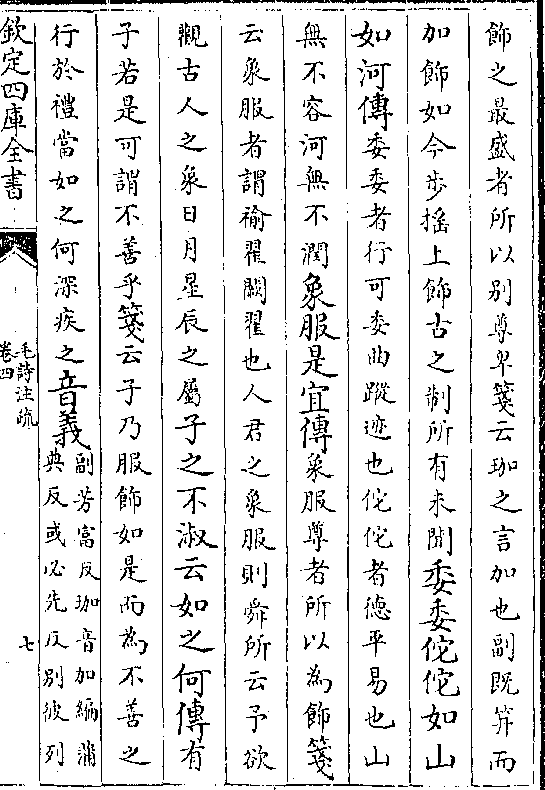 飾之最盛者所以别尊卑箋云珈之言加也副既筓而
加飾如今步搖上飾古之制所有未聞委委佗佗如山
如河傳委委者行可委曲蹤迹也佗佗者德平易也山
無不容河無不潤象服是宜傳象服尊者所以為飾箋
云象服者謂褕翟闕翟也人君之象服則舜所云予欲
觀古人之象日月星辰之屬子之不淑云如之何傳有
子若是可謂不善乎箋云子乃服飾如是而為不善之
行於禮當如之何深疾之音義副芳富反珈音加編蒲
典反或必先反别彼列
欽定四庫全書
毛詩注疏
卷四
七